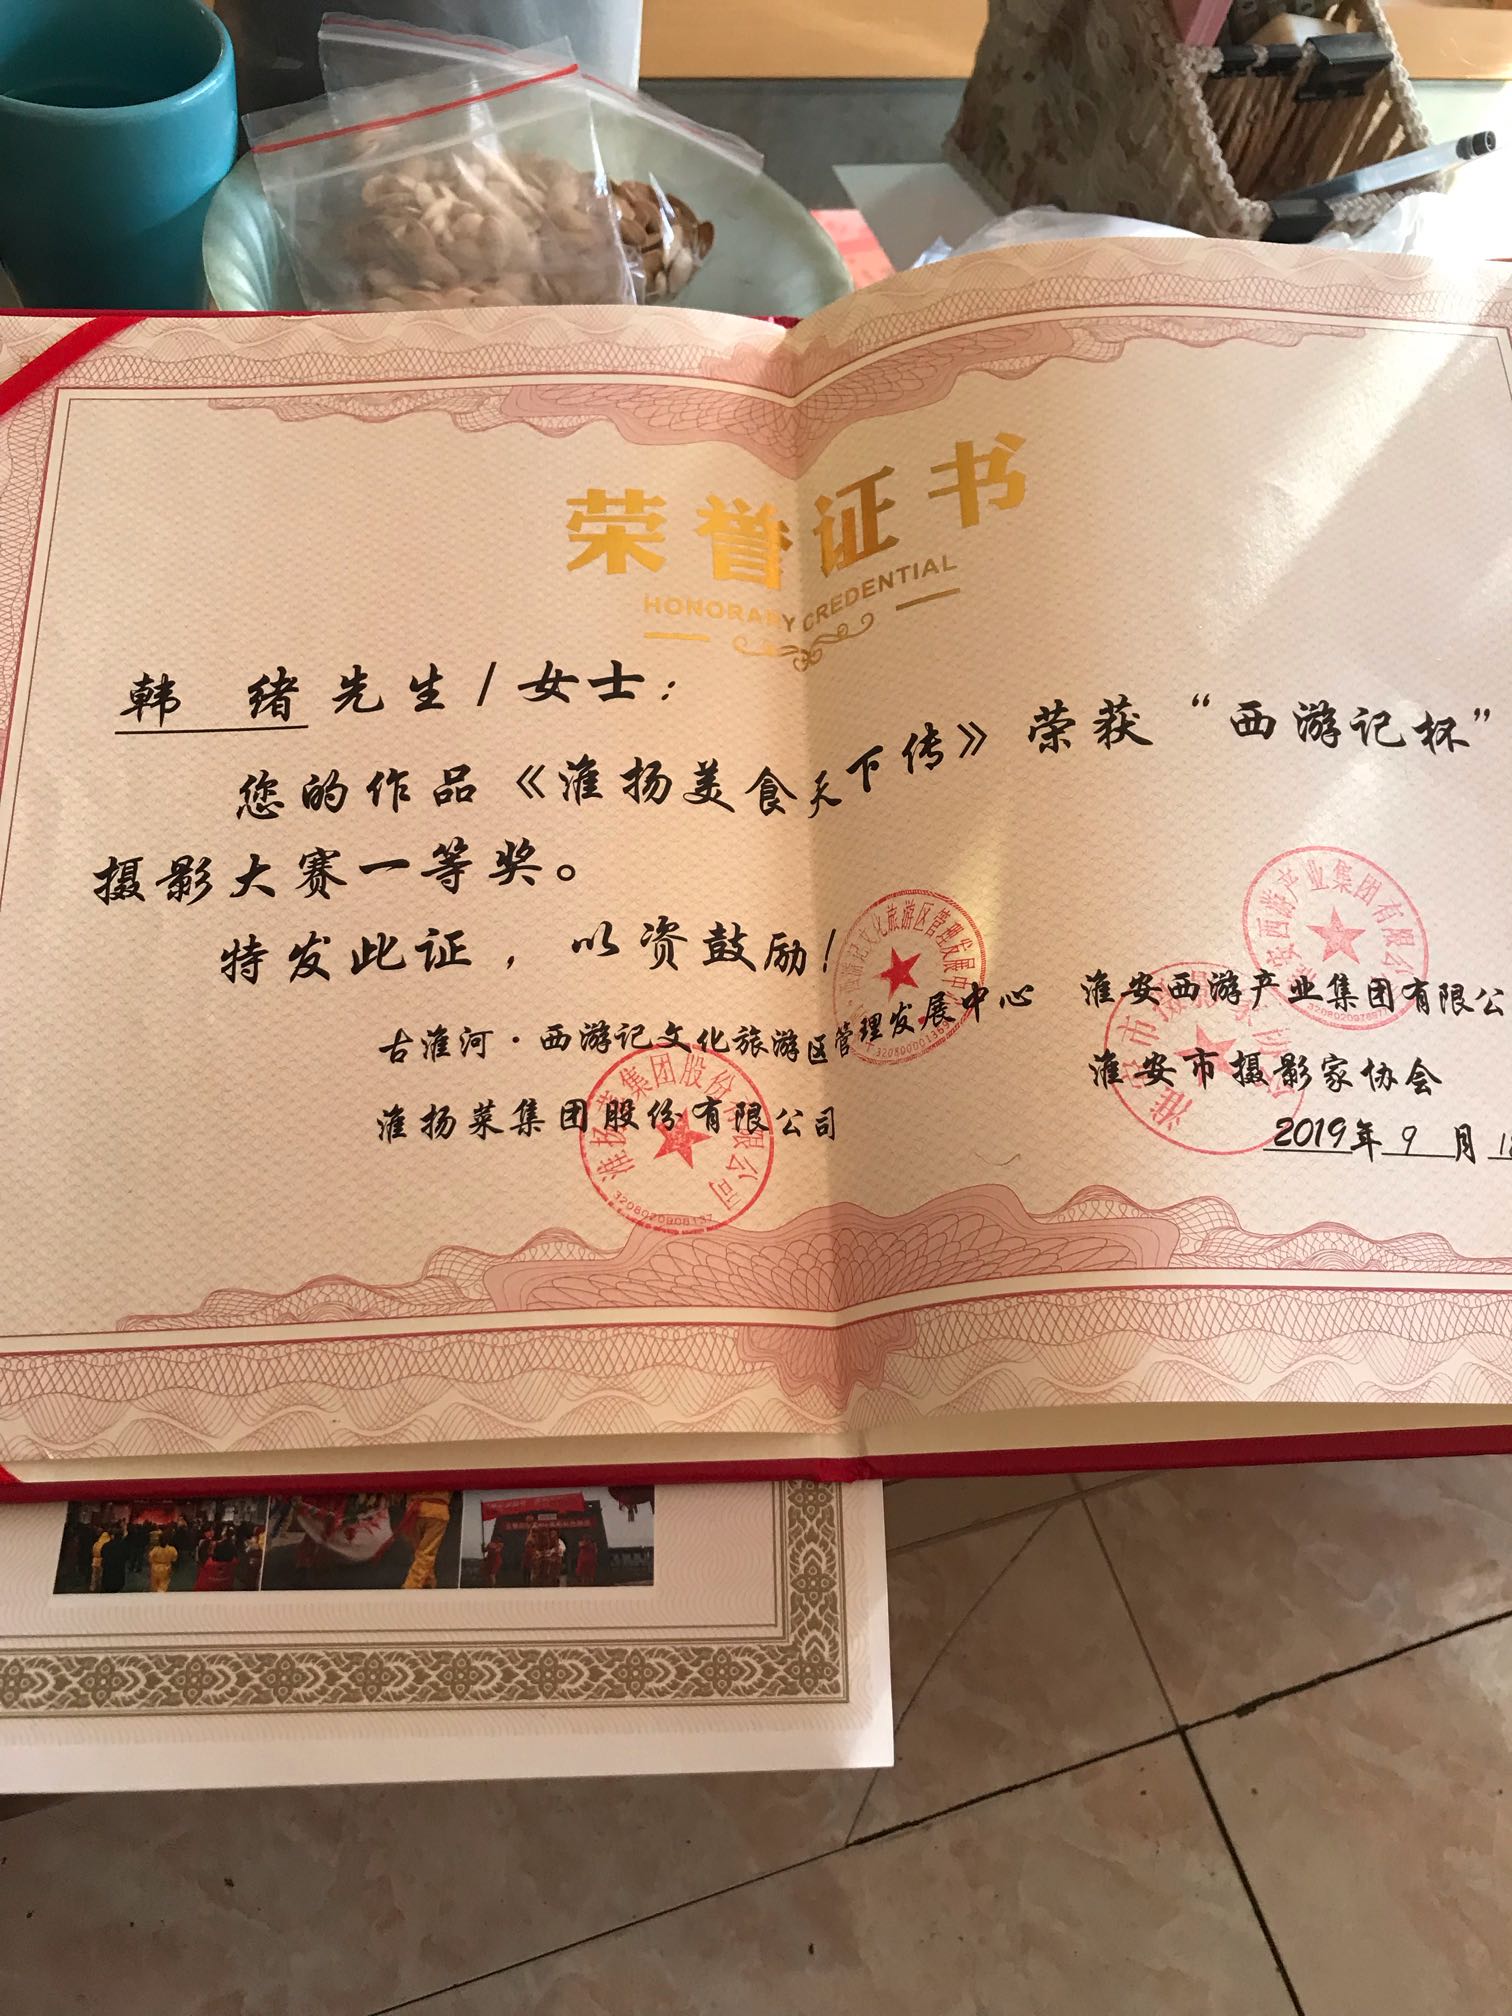 荣誉证书
HONORARY CREDENTIAL
韩 绪先生/女士：
您的作品《淮扬美食天下传》荣获“西游记杯”
摄影大赛一等奖。
特发此证，以资鼓励！
古淮河·西游记文化旅游区管理发展中心 淮安西游产业集团有限公
淮扬菜集团股份有限公司 淮安市摄影家协会
2019年9月1
西游记文化旅游区管理发展中
淮安西游产业集团有限公
淮扬菜集团股份有限公司
3208020908137